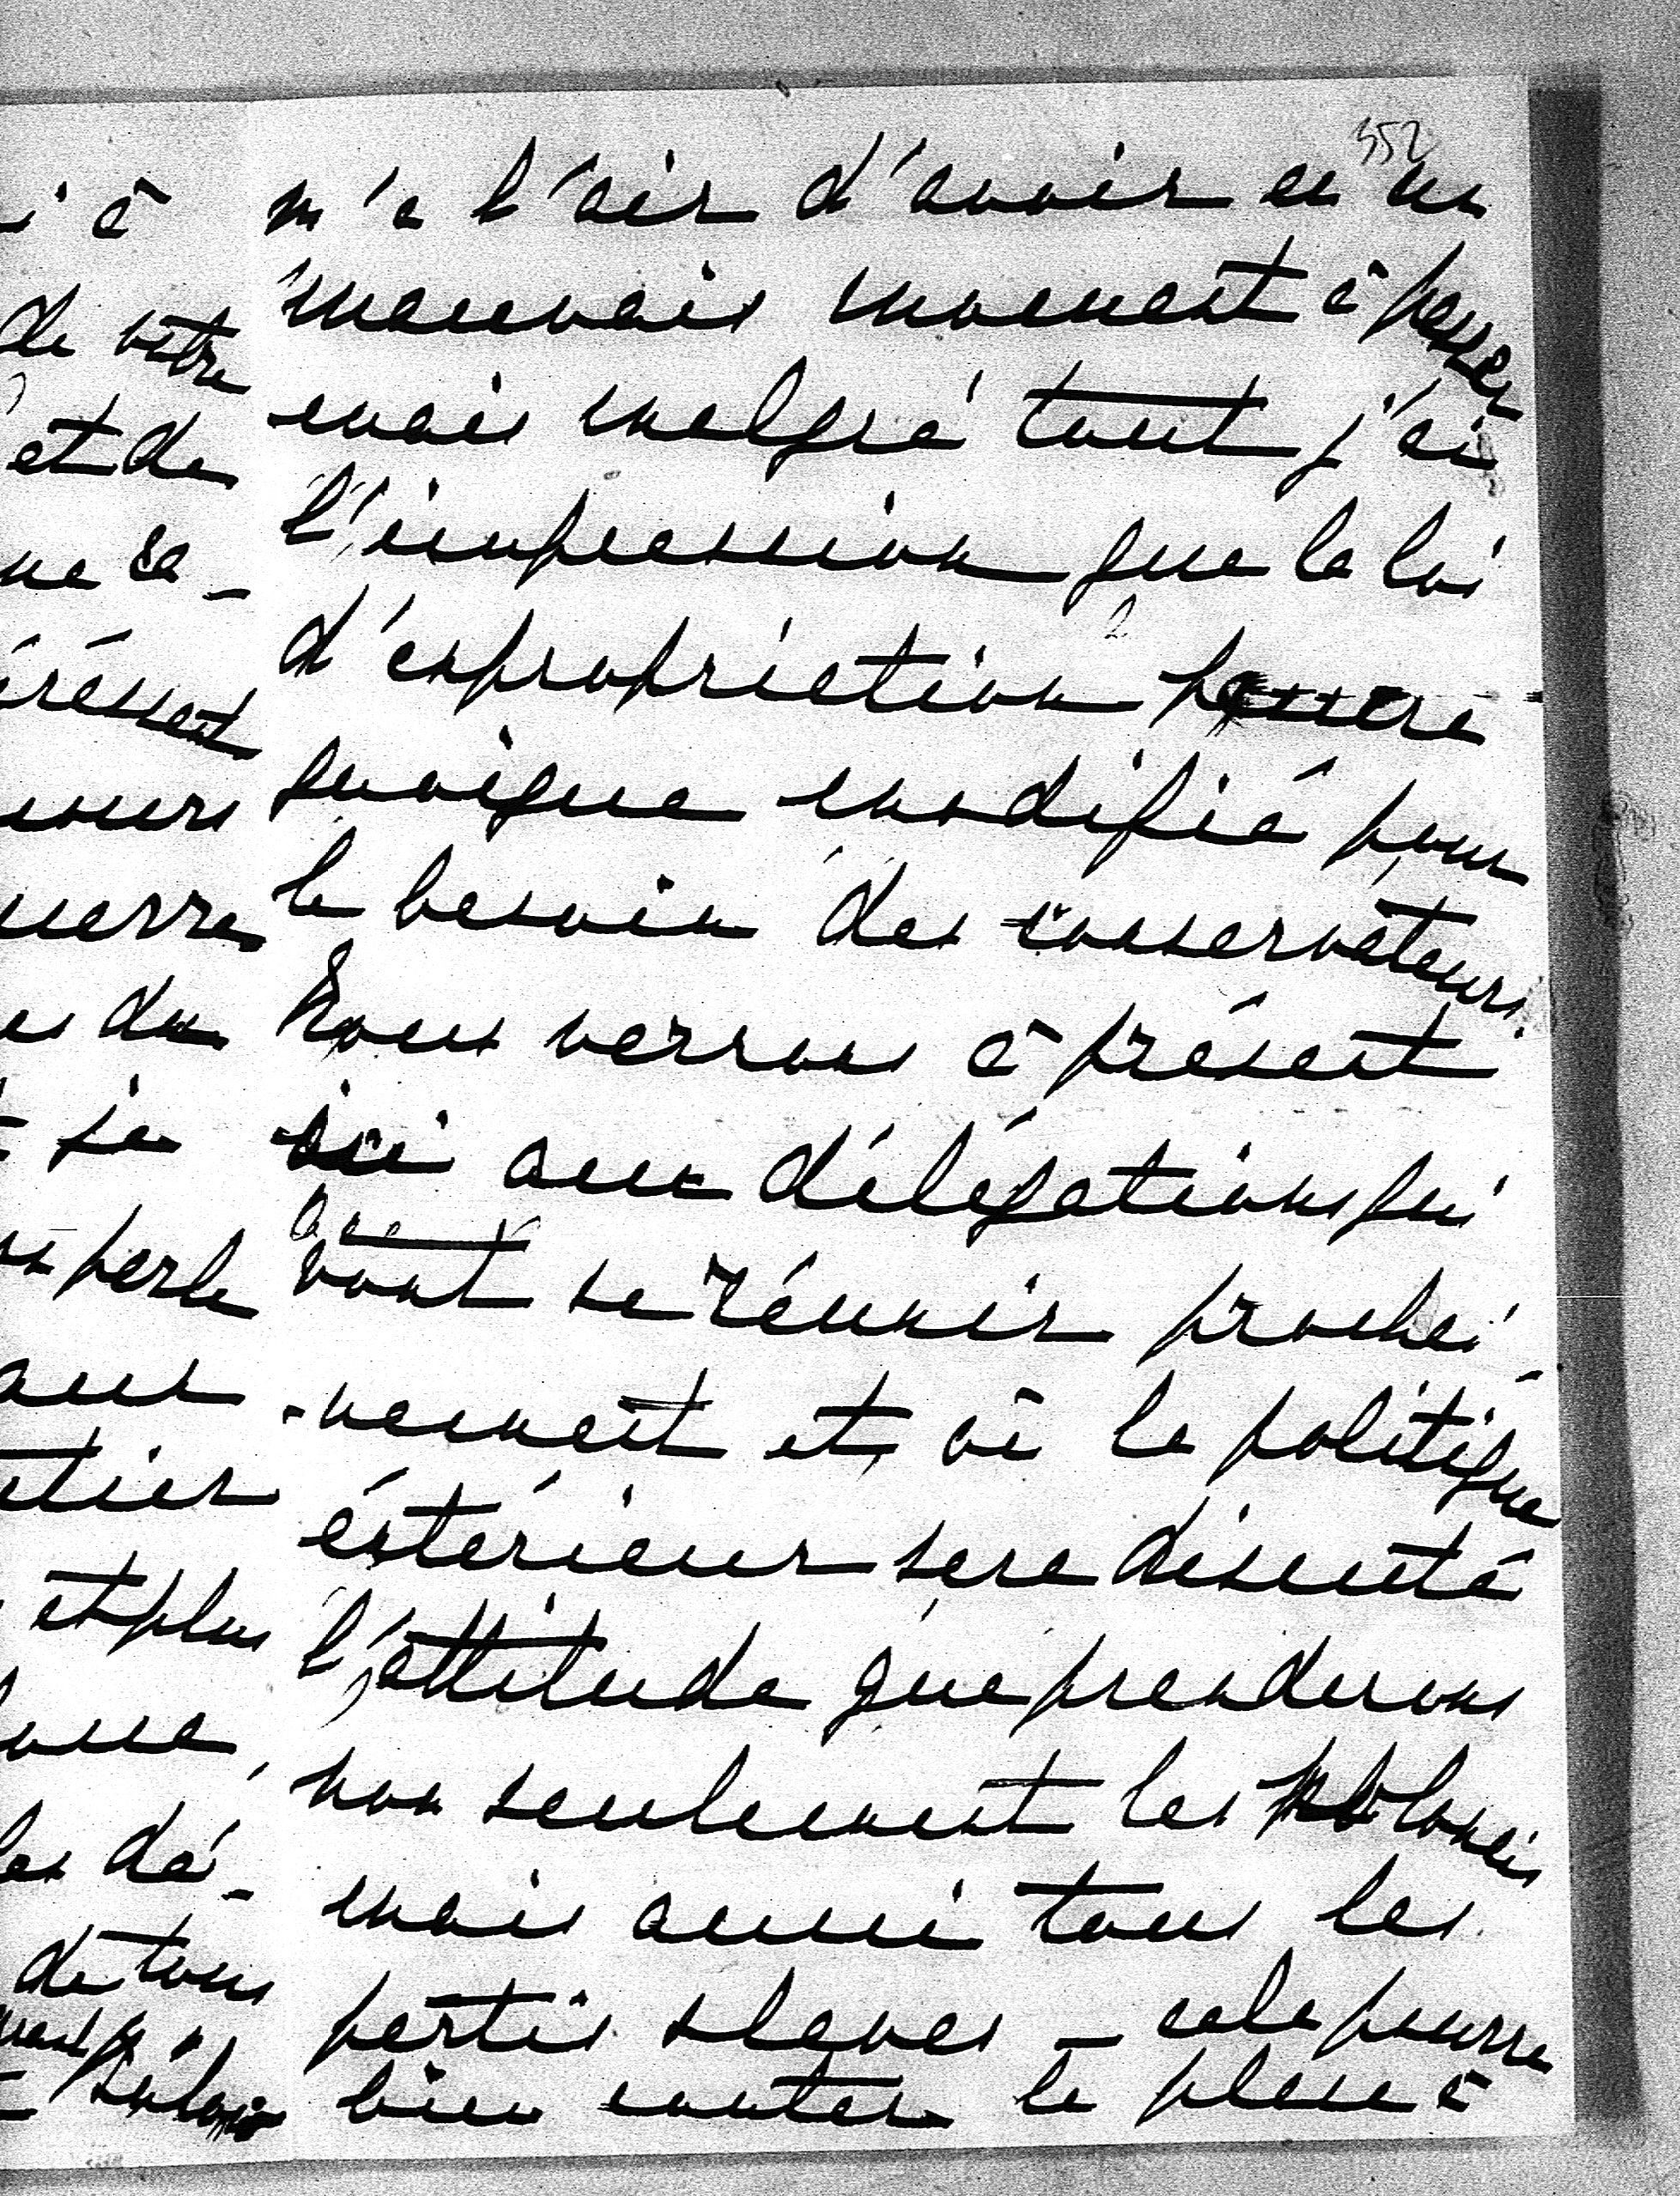 352
i à
de votre
et de
ne sa-
éressent
uerre
es du
je
parle
aux
et plus
les dé-
de tous
m'a l'air d'avoir eu un
mauvais moment à passer
mais malgré tout j'ai
l'impression que la loi
d'expropriation passera
quoique modifié pour
le besoin des conservateurs.
Nous verrons à présent
ici aux délégations qui
vont se réunir prochai-
-nement et où la politique
éxterieur sera discuté
l'attitude que prenderons
non seulement les polonais
mais aussi tous les
partis slaves – cela pourra
bien couter la place à